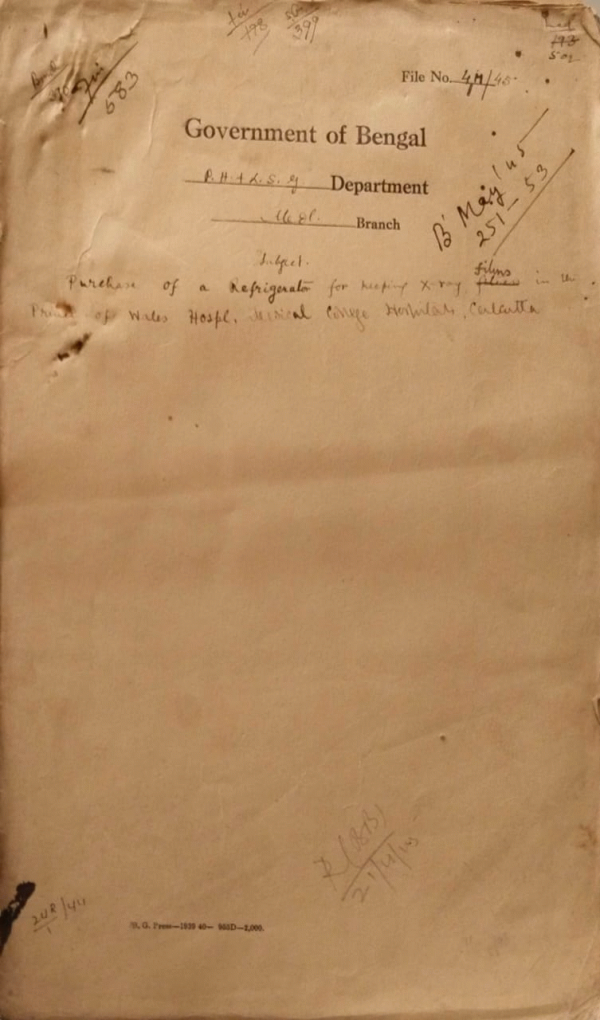 583
399
198
File No. 4M/45
Government of Bengal
P.H. & L.S.G Department
Medl. Branch
B May '45
251–53
Subject.
Purchase of a Refrigerator for keeping X-ray films in the
Prince of Wales Hospl, Medical College Hospitals, Calcutta
21/4/45
24R/44
1
B. G. Press—1939 40— 953D—2,000.